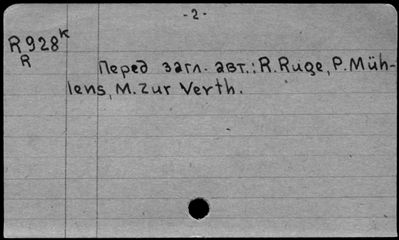 -2-
R928к
R
Перед загл. авт.: R. Ruge, P. Müh-
lens, M. Zur Verth.